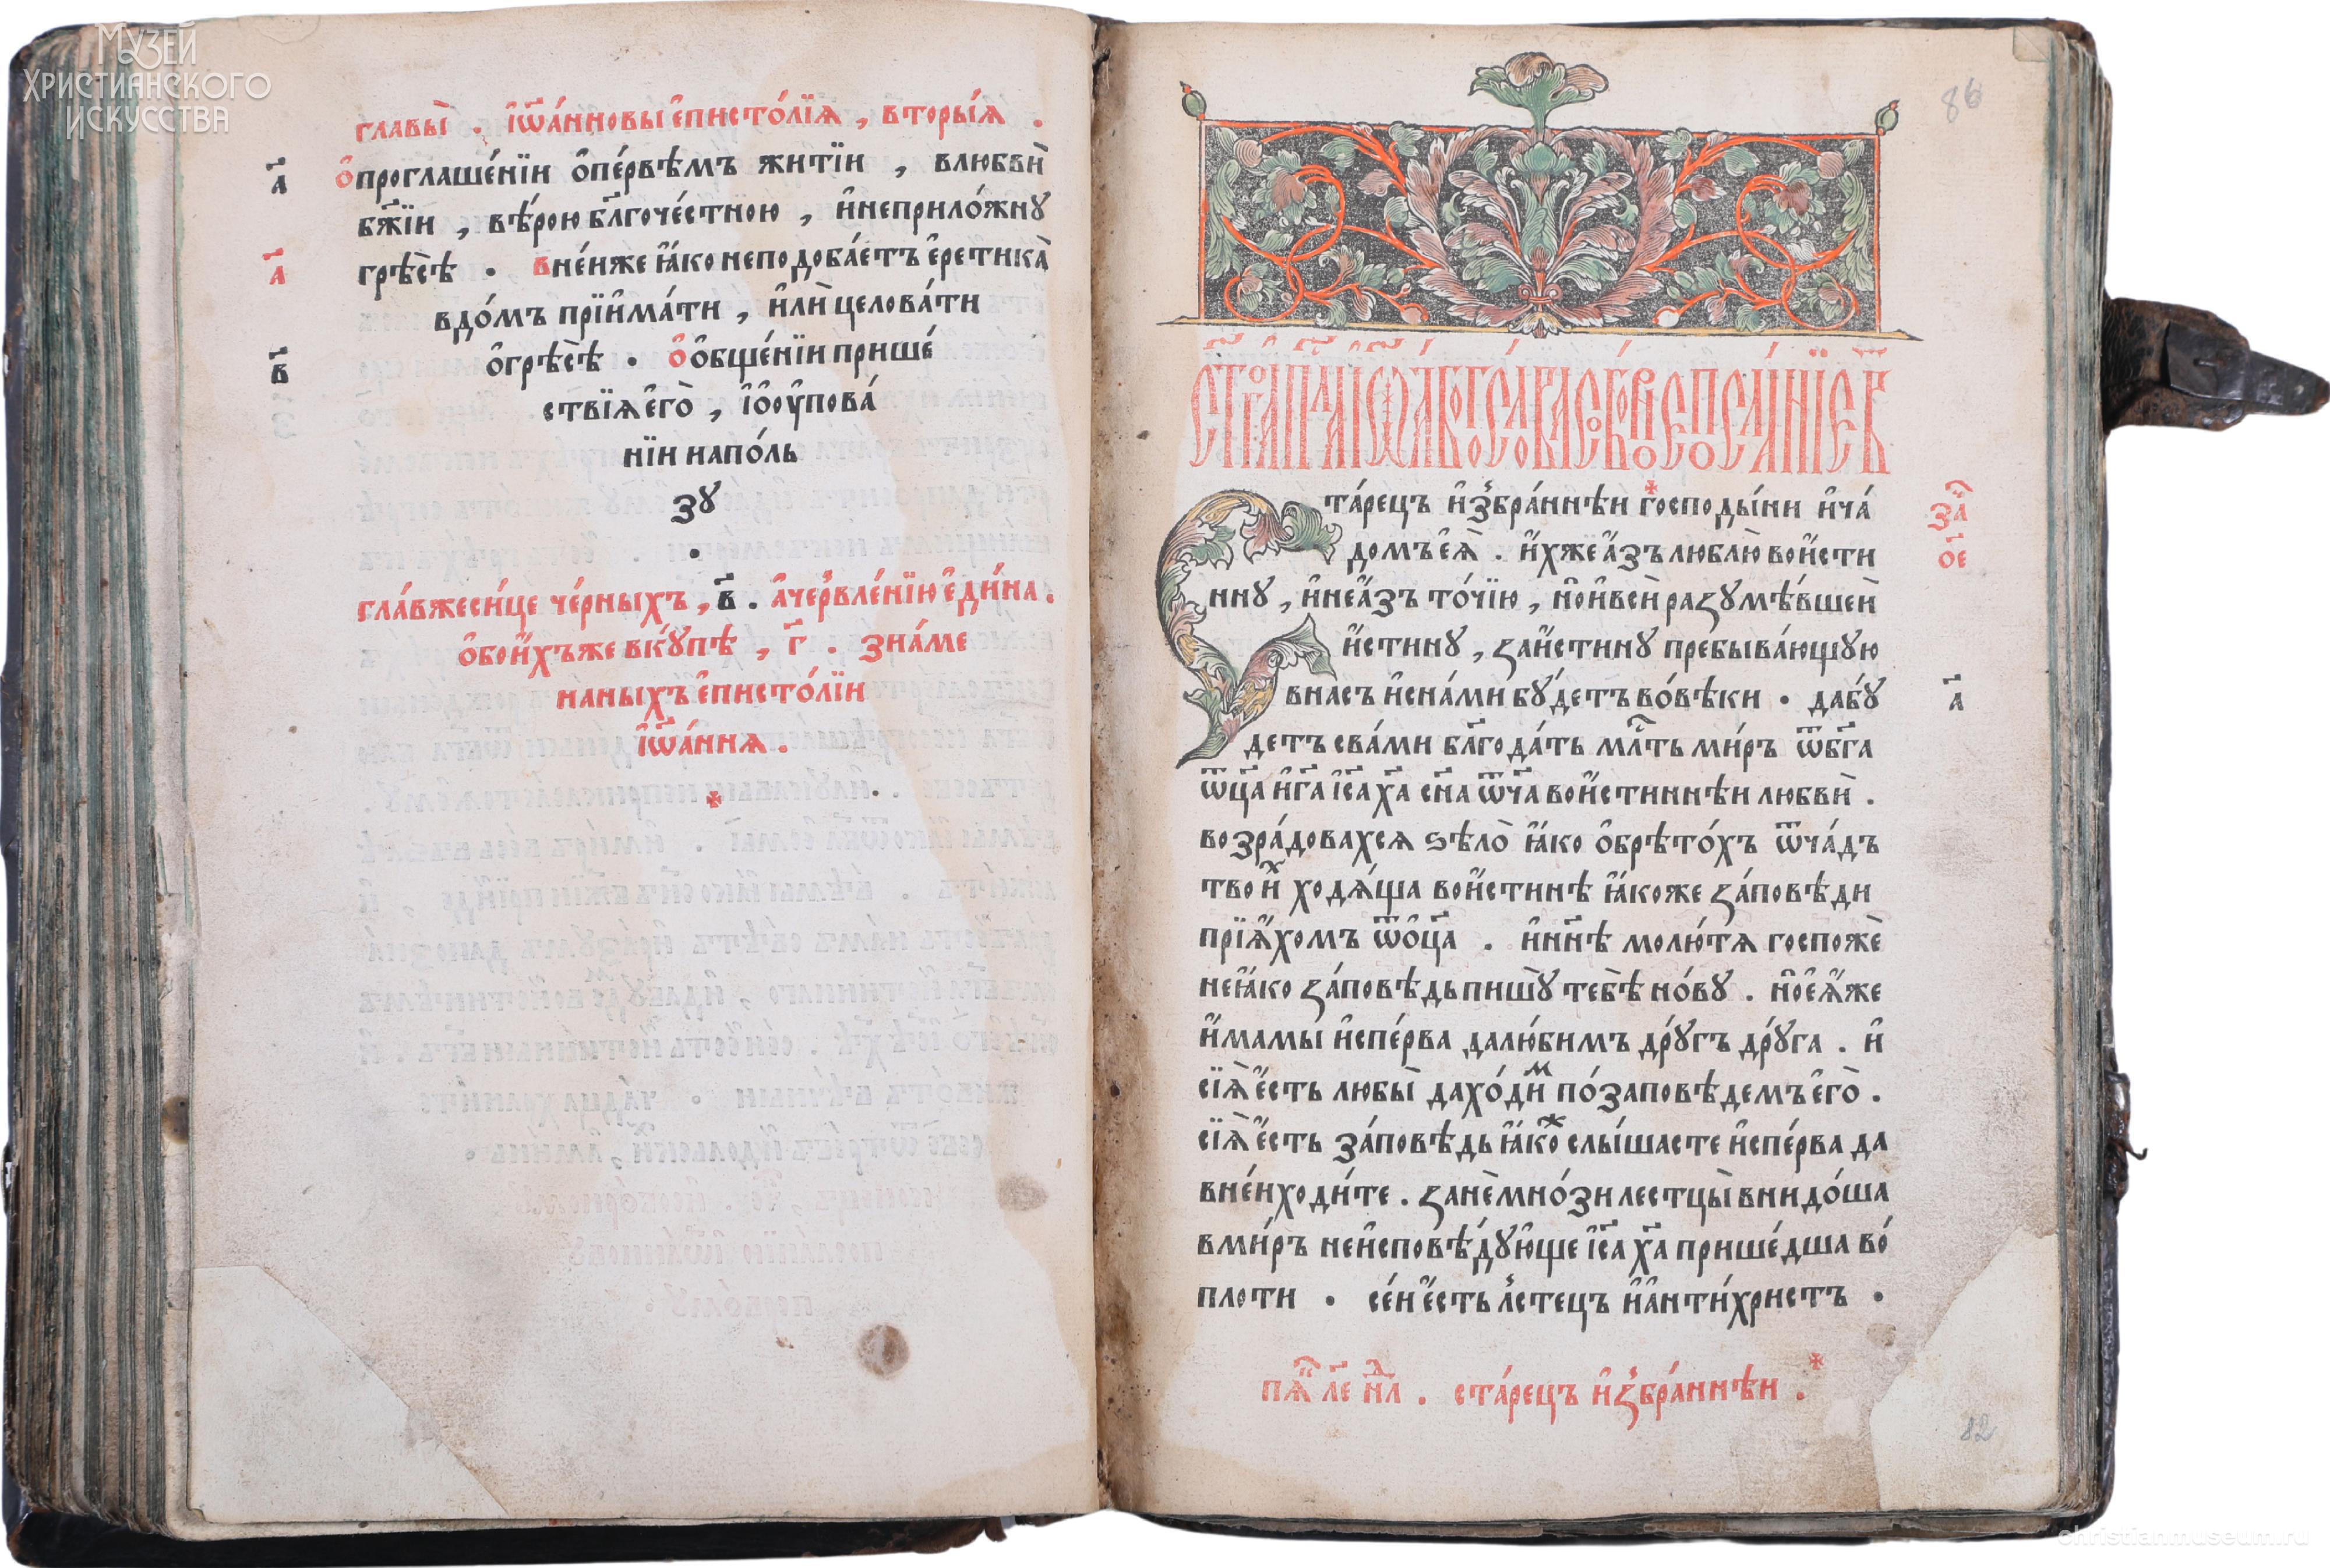 Музей
Христианского
Искусства
главы̀ . і҆ѡ҃анновы є҆писто́лїѧ , вторы́ѧ .
а҃
о҆проглаше́нїи о҆пе́рвѣмъ житїи , влюбвѝ
бж҃їи , вѣ́рою бл҃гоче́стною , и҆неприло́жну
а҃
грѣ̀сѣ . вне́нже ꙗ҆́ко неподоба́етъ є҆ретика̀
вдо́мъ прїи҆ма́ти , и҆лѝ целова́ти
в҃
о҆грѣ̀сѣ . о҆ о҆бще́нїи прише́
ствїѧ є҆го̀ , і҆о҆ оу҆пова́
нїи напо́ль
зꙋ
.
гла́вжеси́це че́рныхъ , в҃ . а҆че́рвле́нїю є҆ди́на .
о҆бои́хъже вкꙋ́пѣ , г҃ . зна́ме
наныхъ є҆писто́лїи
і҆ѡ҃а́ннѧ .
86
за҃
ое҃
та́рецъ и҆збра́ннѣи господы́ни и҆ча́
домъ є҆ѧ̀ . и҆́хже а҆́зъ люблю̀ вои҆́сти
ннꙋ , и҆не а҆́зъ то́чїю , но и҆всѝ разꙋмѣ́вшеи
и҆́стинꙋ , заи҆́стинꙋ пребыва́ющꙋю
внасъ и҆сна́ми бꙋ́детъ во́вѣки . дабꙋ́
а҃
детъ сва́ми бл҃года́ть мл҃ть ми́ръ ѿбг҃а
ѿц҃а и҆гд҃а і҆с҃а х҃а сн҃а ѿч҃а вои҆́стиннѣи любвѝ .
возра́довахсѧ ѕѣлѡ̀ ꙗ҆́ко о҆брѣто́хъ ѿча́дъ
твои҆́х ходѧ́ща вои҆́стинѣ ꙗ҆́коже за́повѣди
прїѧ́хомъ ѿ о҆ц҃а . и҆нн҃ѣ молю́тѧ госпожѐ
не ꙗ҆́ко за́повѣдь пишꙋ̀ тебѣ̀ но́вꙋ . но є҆ѧ́же
и҆́мамы и҆спе́рва далю́бимъ дрꙋ́гъ дрꙋ́га . и҆
сїѧ̀ є҆́сть любы̀ дахо́дим по́заповѣдемъ є҆го̀ .
сїѧ̀ є҆́сть за́повѣдь ꙗ҆́кож слы́шасте и҆спе́рва да
вне́и ходи́те . занѐ мно́зи лестцы̀ внидо́ша
вми́ръ неи҆сповѣ́дꙋющє і҆с҃а х҃а прише́дша во́
плоти . се́и є҆́сть лсте́цъ и҆ а҆нти́христъ .
ста́рецъ и҆збра́ннѣи .
82
christianmuseum.ru